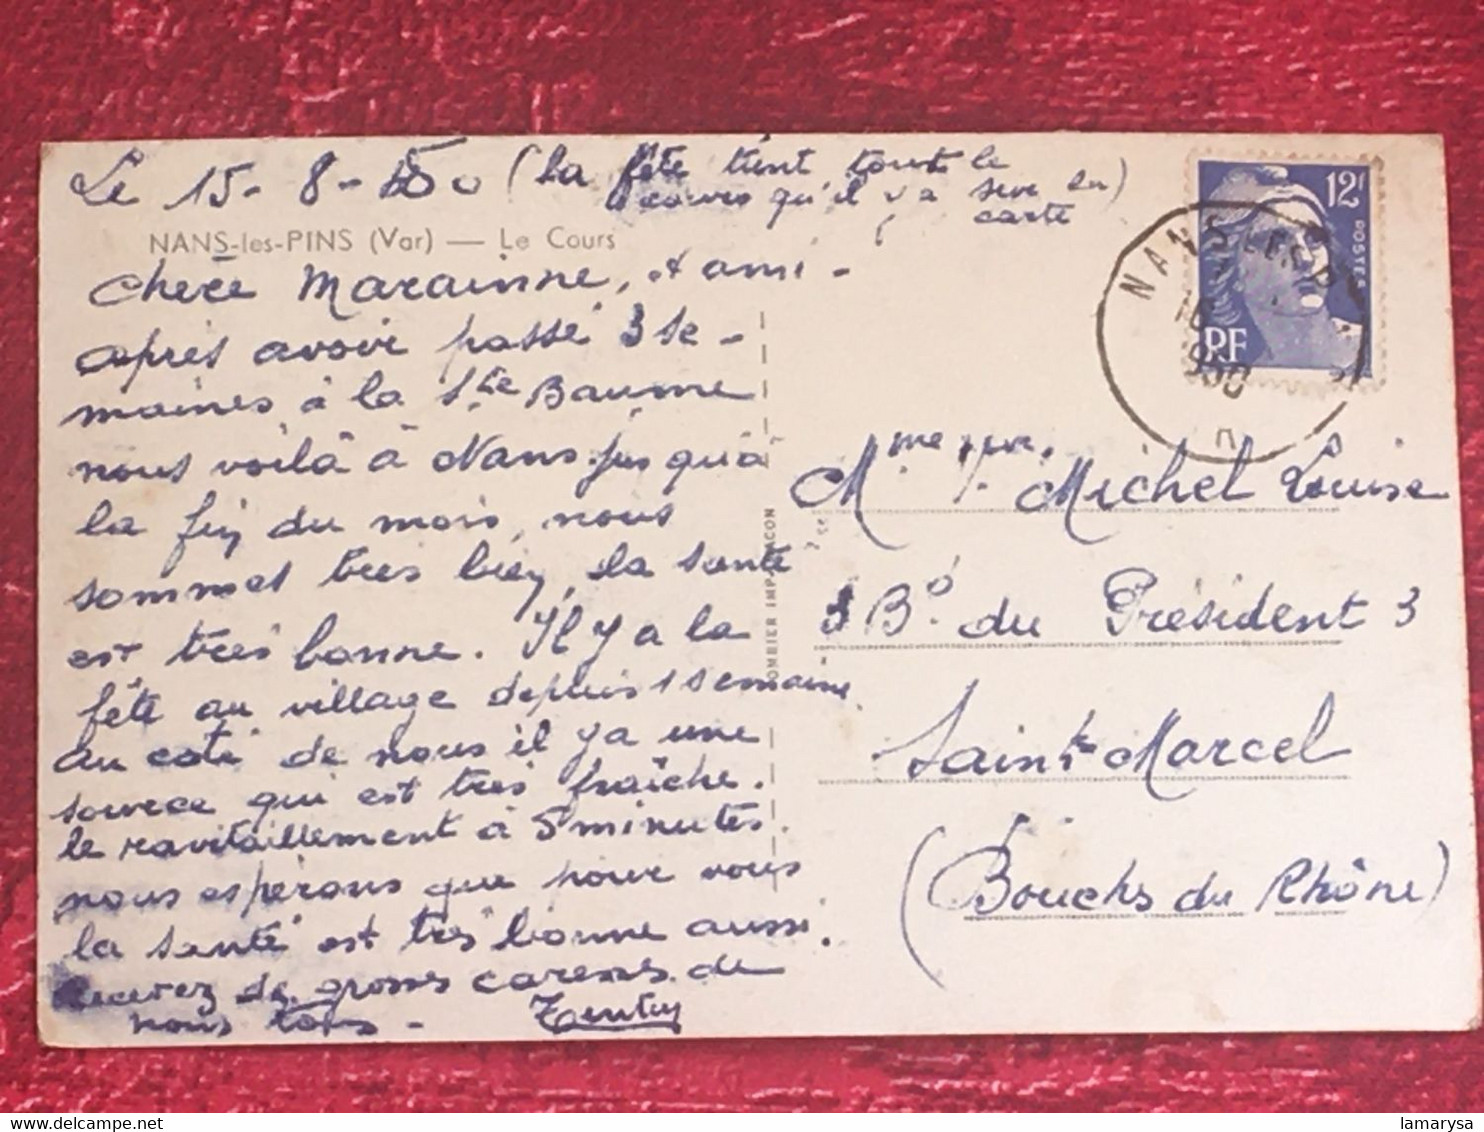 Le 15-8-50 (la fête tient tout le
cours qu'il y a sur la
carte)
NANS-les-PINS (Var) — Le Cours
Chere Marainne, et ami-
après avoir passé 3 se-
maines à la Ste Baume
nous voilà à Nans jusqu'à
la fin du mois, nous
sommes tres bien, la sante
est très bonne. Il y a la
fête au village depuis 1 semaine
au coté de nous il y a une
source qui est très fraîche.
le ravitaillement à 5 minutes.
nous esperons que pour vous
la santé est très bonne aussi.
recevez de grosses caresses de
nous tous -
OMBIER IMP. MACON
12F
POSTES
RF
NANS-LES-PINS
16
950
Mme Michel Louise
3 Bd du Président 3
Saint Marcel
(Bouches du Rhône)
delcampe.net
lamarysa